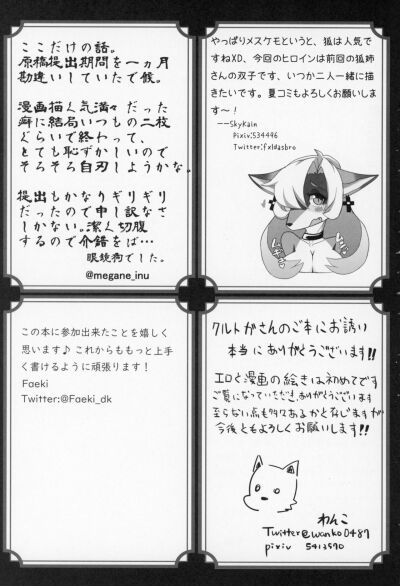 ここだけの話。
原稿提出期間を一ヵ月
勘違いしていたで候。
漫画描く気満々だった
癖に結局いつもの二枚
ぐらいで終わって、
とても恥ずかしいので
そろそろ自刃しようかな。
提出もかなりギリギリ
だったので申し訳なさ
しかない。潔く切腹
するので介錯をば…
眼鏡狗でした。
@megane_inu
やっぱりメスケモというと、狐は人気で
すねXD、今回のヒロインは前回の狐姉
さんの双子です、いつか二人一緒に描
きたいです。夏コミもよろしくお願いしま
す〜!
--SkyKain
Pixiv:534496
Twitter:fxldasbro
この本に参加出来たことを嬉しく
思います♪これからももっと上手
く書けるように頑張ります!
Faeki
Twitter:@Faeki_dk
クルトガさんのご本にお誘い
本当にありがとうございます!!
エロく漫画の絵きは初めてです
ご覧になっていただき、ありがとうございます
至らない点も多々あるかと存じますが
今後ともよろしくお願いします!!
わんこ
Twitter@wanko0487
pixiv 5413590